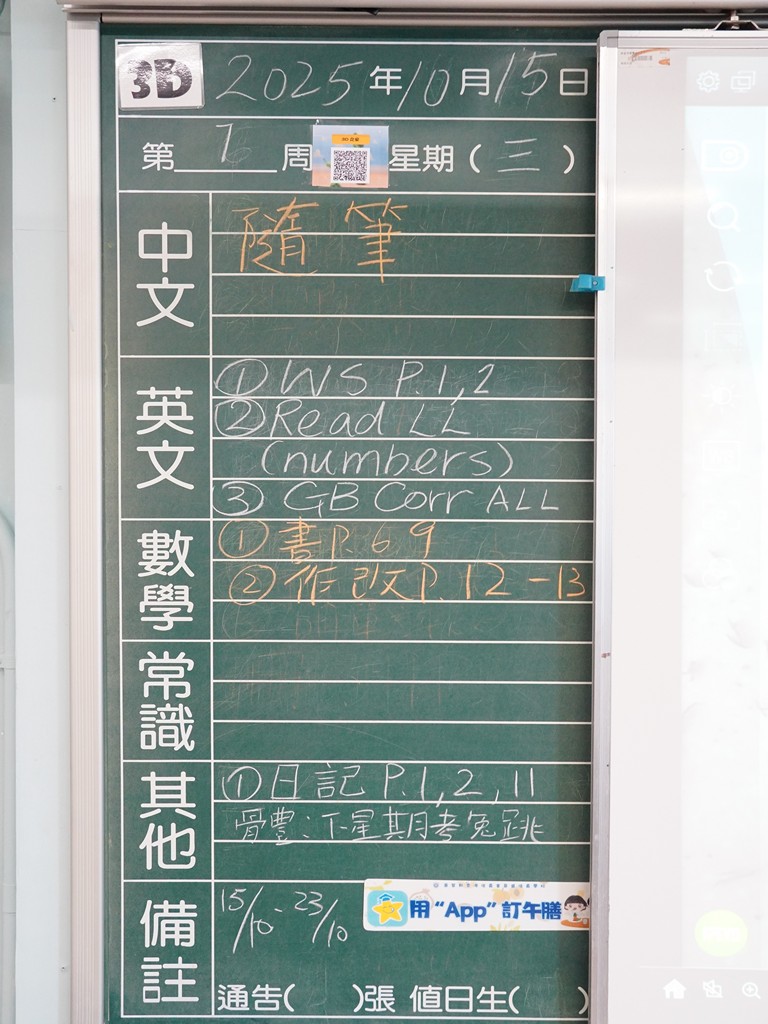 3D 2025年10月15日
第 7 周 星期(三)
中文
隨筆
英文
① WS P.1,2
② Read LL
(numbers)
③ GB Corr ALL
數學
① 書P.69
② 作改P.12-13
常識
其他
① 日記 P.1,2,11
體：下星期考兔跳
備註
15/10-23/10
用“App”訂午膳
通告( )張 值日生( )